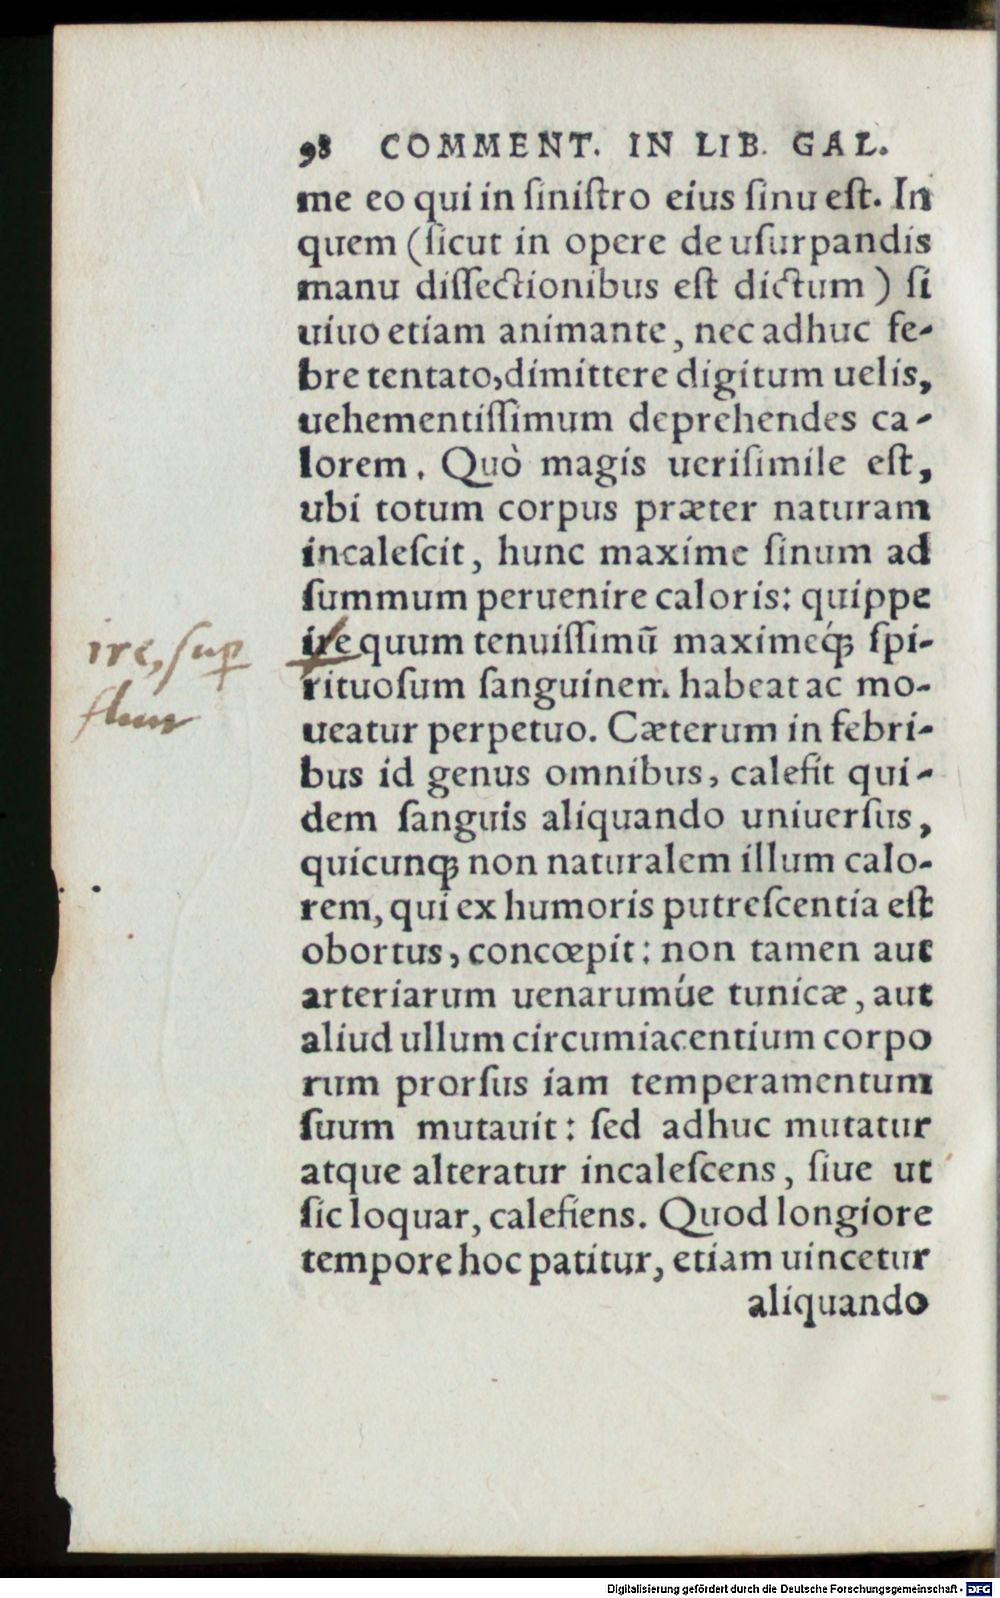 98 COMMENT. IN LIB. GAL.
me eo qui in ſiniſtro eius ſinu eſt. In
quem (ſicut in opere de uſurpandis
manu diſſectionibus eſt dictum) ſi
uiuo etiam animante, nec adhuc fe-
bre tentato, dimittere digitum uelis,
uehementiſſimum deprehendes ca-
lorem. Quò magis ueriſimile eſt,
ubi totum corpus præter naturam
incaleſcit, hunc maxime ſinum ad
ſummum peruenire caloris: quippe
ire quum tenuiſſimū maximeq́ꝫ ſpi-
rituoſum ſanguinem habeat ac mo-
ueatur perpetuo. Cæterum in febri-
bus id genus omnibus, calefit qui-
dem ſanguis aliquando uniuerſus,
quicunqꝫ non naturalem illum calo-
rem, qui ex humoris putreſcentia eſt
obortus, concœpit: non tamen aut
arteriarum uenarumúe tunicæ, aut
aliud ullum circumiacentium corpo
rum prorſus iam temperamentum
ſuum mutauit: ſed adhuc mutatur
atque alteratur incaleſcens, ſiue ut
ſic loquar, calefiens. Quod longiore
tempore hoc patitur, etiam uincetur
aliquando
ire, ſuꝑ
fluu
Digitalisierung gefördert durch die Deutsche Forschungsgemeinschaft - DFG